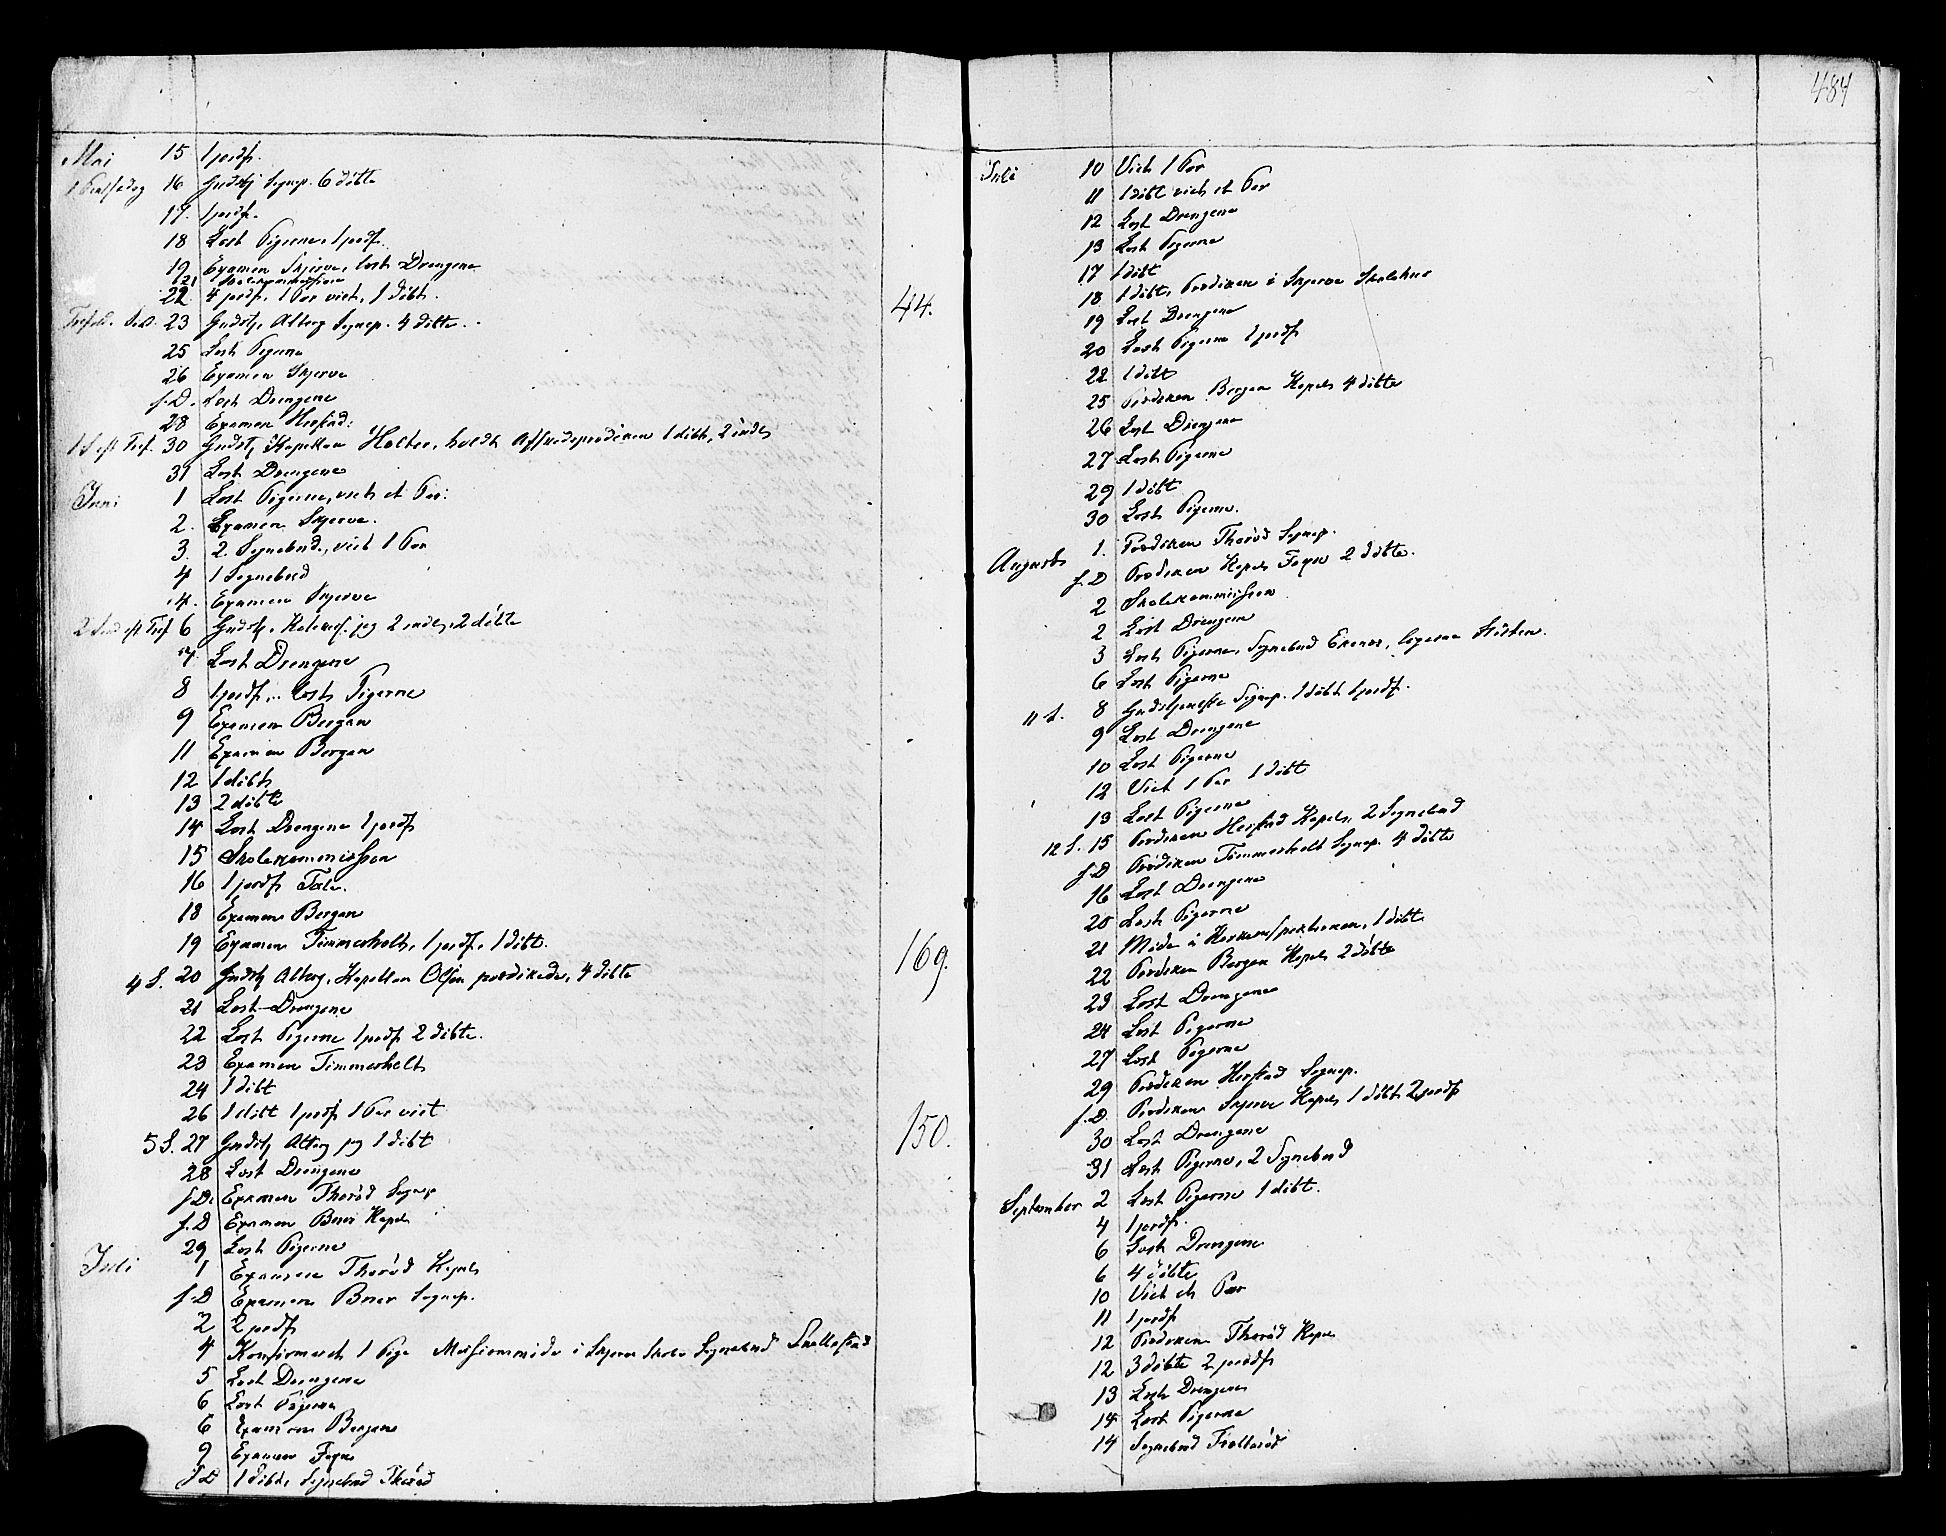 Mai 15 1 jordf.
1 Pintsedag 16 Gudstj Sognep. 6 döbte
17. 1 jordf.
18 Læst Pigerne, 1 jordf.
19 Examen Skjerve, læst Drengene
21 Skolekommission
22 4 jordf, 1 Par viet, 1 döbt.
Trefold. Sød. 23 Gudstj. Alterg Sognep. 4 döbte. 44.
25 Læst Pigerne
26 Examen Skjerve
s.D. Læst Drengene
28 Examen Herstad.
1 S eft Tref. 30 Gudstj Kapellan Holter, holdt Afskedsprædiken 1 döbt, 2 indl
31 Læst Drengene
Juni 1 Læst Pigerne, viet et Par.
2. Examen Skjerve.
3. 2 Sognebud, viet 1 Par
4 1 Sognebud
4. Examen Skjerve
2 Sønd eft Tref 6 Gudstj, jeg 2 indl, 2 döbte
7. Læst Drengene
8 1 jordf, Læst Pigerne
9 Examen Bergan
11 Examen Bergan
12 1 döbt
13 2 döbte
14 Læst Drengene 1 jordf
15 Skolekommission
16 1 jordf Tale.
18 Examen Bergan
19 Examen Timmerholt, 1 jordf, 1 döbt.
4 S. 20 Gudstj Alterg, Kapellan Olsen prædikede, 4 döbte 169.
21 Læst Drengene
22 Læst Pigerne 1 jordf 2 döbte.
23 Examen Timmerholt
24 1 döbt
26 1 döbt 1 jordf 1 Par viet
5 S. 27 Gudstj Alterg jeg 1 döbt 150.
28 Læst Drengene
s.D. Examen Thoröd Sognep
s.D Examen Kapel
29 Læst Pigerne
Juli 1 Examen Thoröd Kapel
s.D Examen Sognep.
2 2 jordf
4 Konfirmeret 1 Pige Missionsmöde i Skjerve Skole Sognebud
5 Læst Drengene
6 Læst Pigerne
6 Examen Bergan
9 Examen Fogn
s D 1 döbt, Sognebud Thoröd
484
Juli 10 Viet 1 Par
11 1 döbt viet et Par
12 Læst Drengene
13 Læst Pigerne
17 1 döbt
18 1 döbt, Prædiken i Skjerve Skolehus
19 Læst Drengene
20 Læst Pigerne 1 jordf
22 1 döbt
25 Prædiken Bergan Kapel 4 döbte
26 Læst Drengene
27 Læst Pigerne
29 1 döbt
30 Læst Pigerne.
Augusts 1. Prædiken Thoröd Sognep.
s.D Prædiken Kapel Fogn 2 döbte.
2 Skolekommission
2 Læst Drengene
3 Læst Pigerne, Sognebud
6 Læst Pigerne
11 S. 8 Gudstjeneste Sognep. 1 döbt 1 jordf.
9 Læst Drengene
10 Læst Pigerne
12 Viet 1 Par 1 döbt
13 Læst Pigerne
12 S. 15 Prædiken Herstad Kapel, 2 Sognebud
s.D Prædiken Timmerholt Sognep. 4 döbte
16 Læst Drengene
20 Læst Pigerne
21 Möde i 1 döbt
22 Prædiken Bergan Kapel 2 döbte
23 Læst Drengene
24 Læst Pigerne
27 Læst Pigerne
29 Prædiken Herstad Sognep.
s.D. Prædiken Skjerve Kapel 1 döbt 2 jordf
30 Læst Drengene
31 Læst Pigerne, 2 Sognebud
September 2 Læst Pigerne 1 döbt.
4 1 jordf.
6 Læst Drengene
6 4 döbte
10 Viet et Par
11 1 jordf
12 Prædiken Thoröd Kapel
12 3 döbte 2 jordf
13 Læst Drengene
14 Læst Pigerne
14 Sognebud Trolleröd